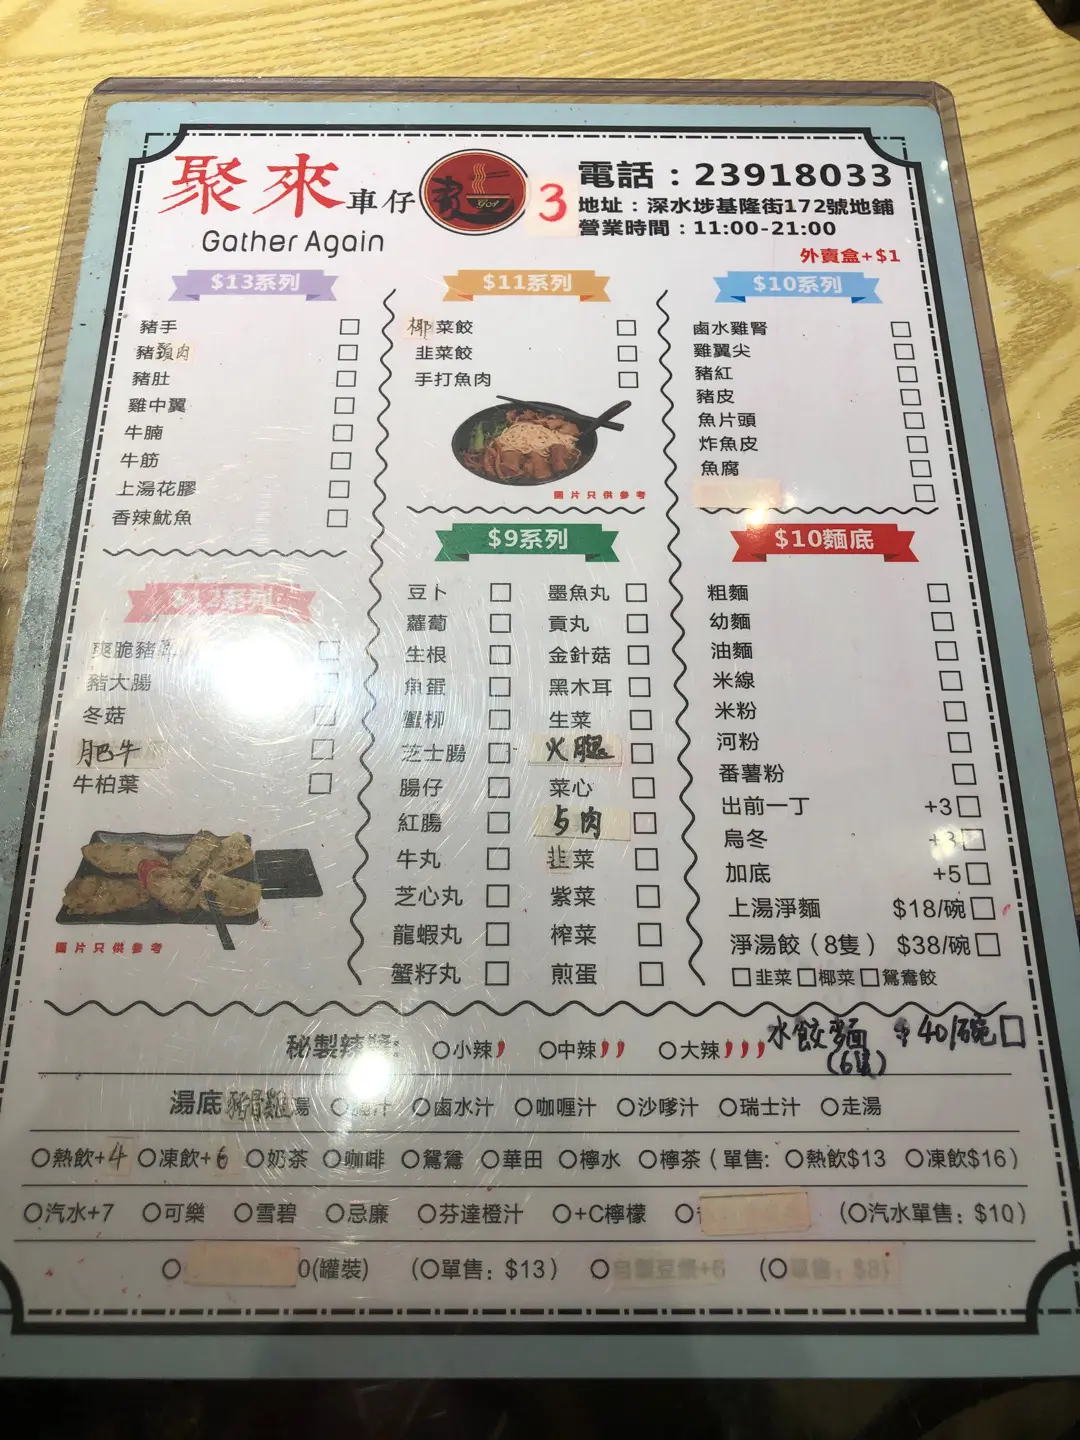 聚來車仔
Gather Again
3
電話：23918033
地址：深水埗基隆街172號地鋪
營業時間：11:00-21:00
外賣盒+$1
$13系列
豬手
豬頸肉
豬肚
雞中翼
牛腩
牛筋
上湯花膠
香辣魷魚
$12系列
爽脆豬
豬大腸
冬菇
肥牛
牛柏葉
圖片只供參考
$11系列
椰菜餃
韭菜餃
手打魚肉
圖片只供參考
$9系列
豆卜 墨魚丸
蘿蔔 貢丸
生根 金針菇
魚蛋 黑木耳
蟹柳 生菜
芝士腸 火腿
腸仔 菜心
紅腸 肉
牛丸 韮菜
芝心丸 紫菜
龍蝦丸 榨菜
蟹籽丸 煎蛋
$10系列
鹵水雞腎
雞翼尖
豬紅
豬皮
魚片頭
炸魚皮
魚腐
$10麵底
粗麵
幼麵
油麵
米線
米粉
河粉
番薯粉
出前一丁 +3
烏冬 +3
加底 +5
上湯淨麵 $18/碗
淨湯餃（8隻） $38/碗
韭菜 椰菜 鴛鴦餃
水餃麵 $40/碗
(6隻)
秘製辣醬: 小辣 中辣 大辣
湯底 豬骨雞湯 汁 鹵水汁 咖喱汁 沙嗲汁 瑞士汁 走湯
熱飲+4 凍飲+6 奶茶 咖啡 鴛鴦 華田 檸水 檸茶（單售: 熱飲$13 凍飲$16）
汽水+7 可樂 雪碧 忌廉 芬達橙汁 +C檸檬 （汽水單售：$10）
0(罐裝) （單售：$13）